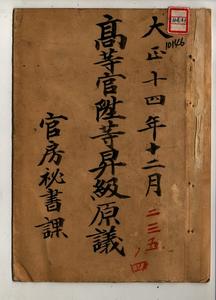 大正十四年十二月
二三五ノ四
高等官陞等昇級原議
官房秘書課
10146